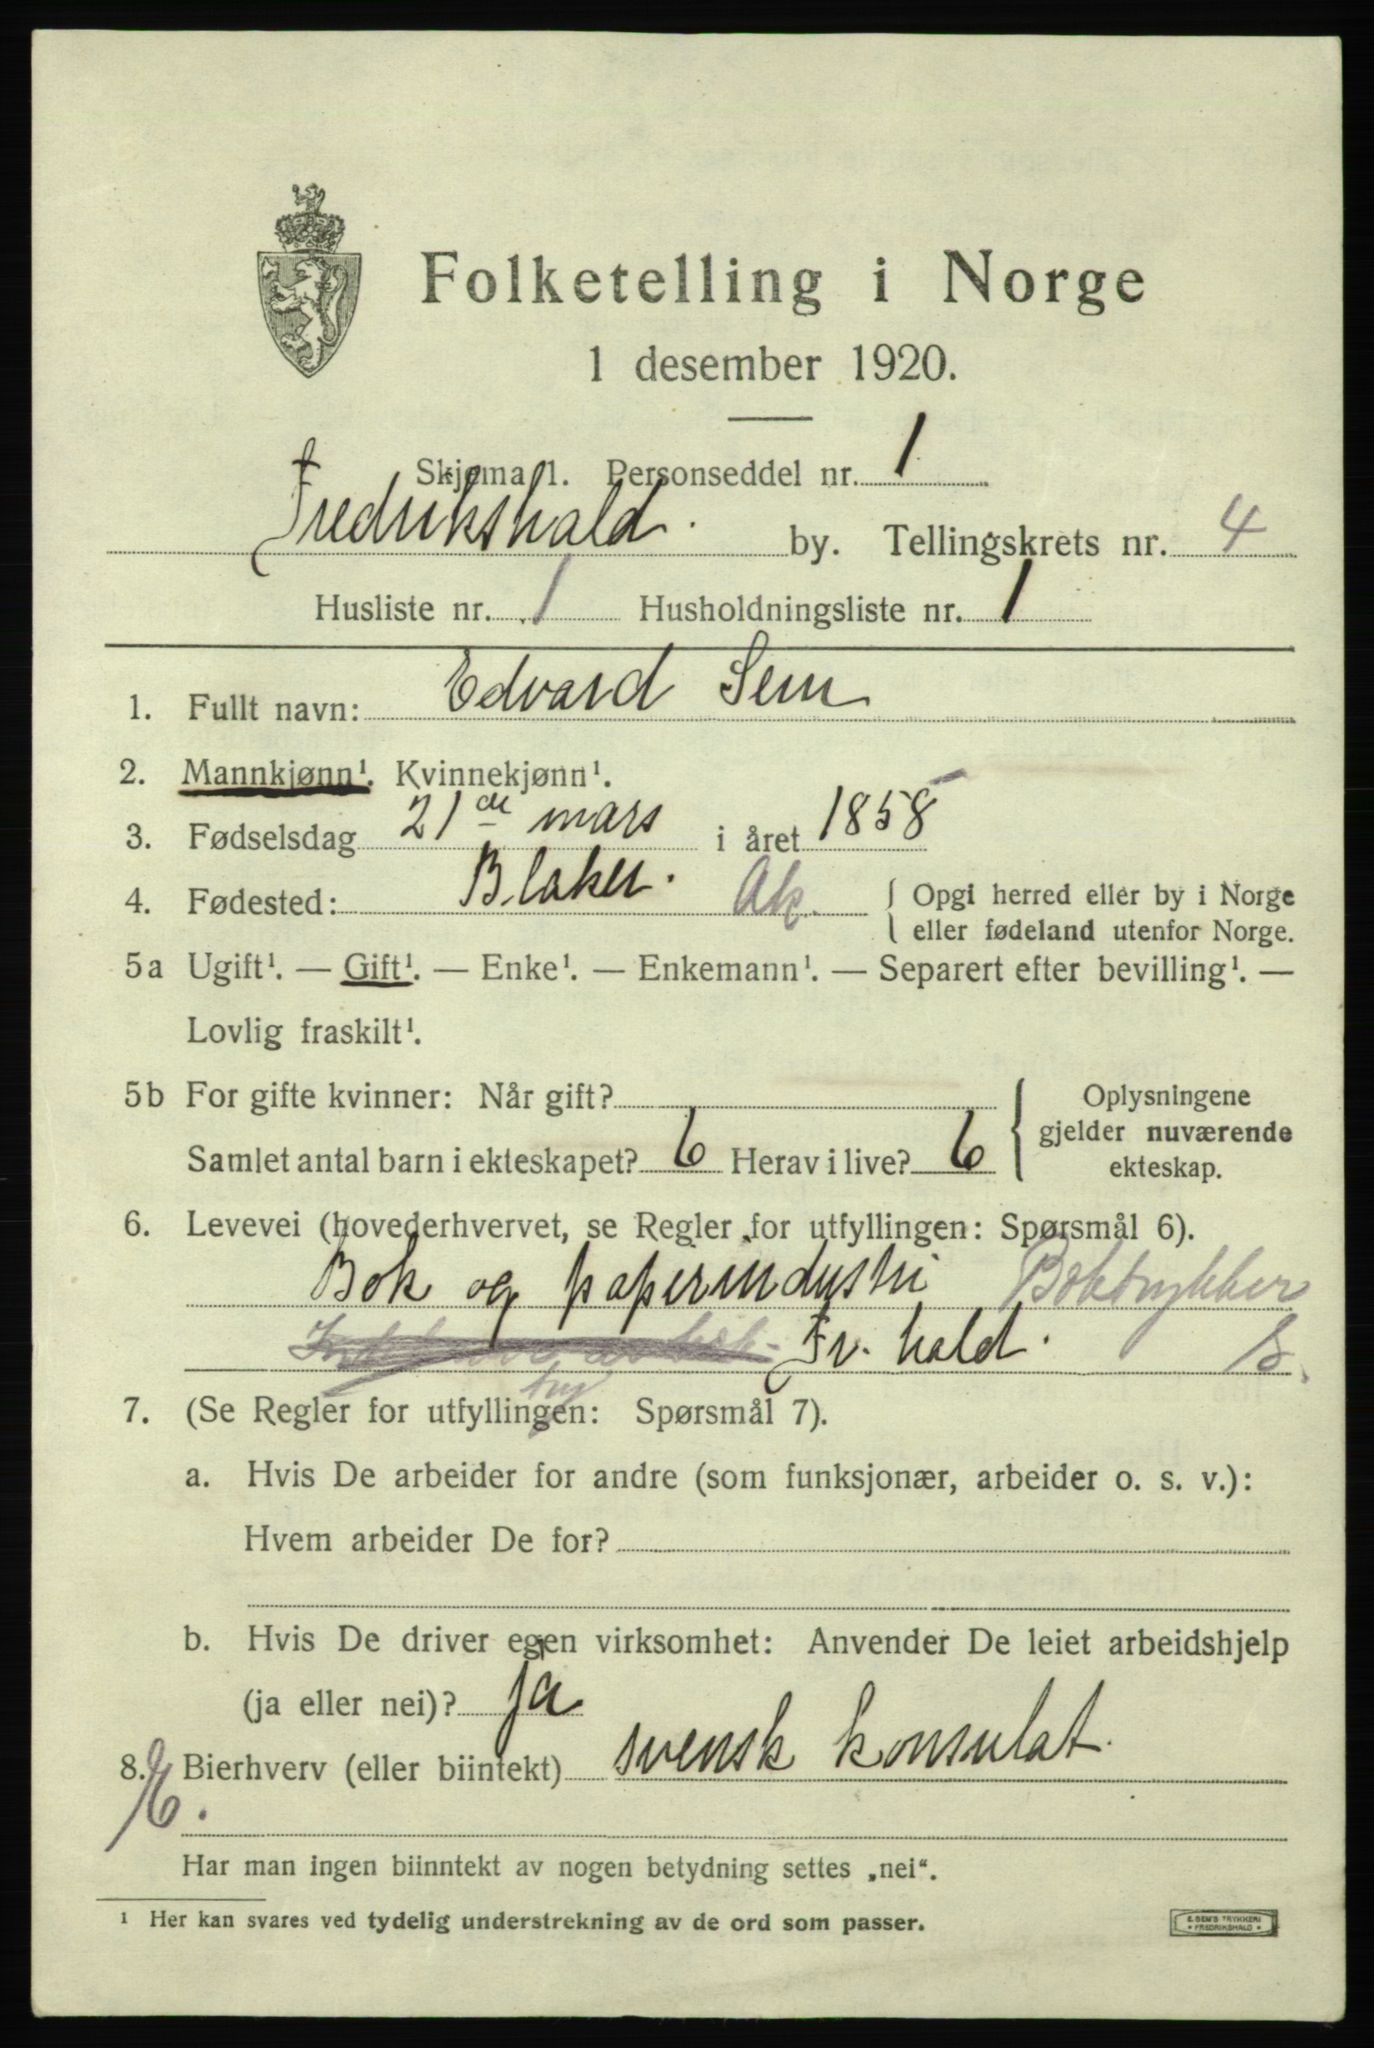 Folketelling i Norge
1 desember 1920.
Skjema 1. Personseddel nr. 1
Fredrikshald. by. Tellingskrets nr. 4
Husliste nr. 1 Husholdningsliste nr. 1
1. Fullt navn: Edvard Sem
2. Mannkjønn¹. Kvinnekjønn¹.
3. Fødselsdag 21de mars i året 1858
4. Fødested: Blaker. Ak. { Opgi herred eller by i Norge
eller fødeland utenfor Norge.
5a Ugift¹. — Gift¹. — Enke¹. — Enkemann¹. — Separert efter bevilling¹. —
Lovlig fraskilt¹.
5b For gifte kvinner: Når gift? { Oplysningene
gjelder nuværende
ekteskap.
Samlet antal barn i ekteskapet? 6 Herav i live? 6
6. Levevei (hovederhvervet, se Regler for utfyllingen: Spørsmål 6).
Bok og papirindustri Boktrykker
Fr. hald. S.
7. (Se Regler for utfyllingen: Spørsmål 7).
a. Hvis De arbeider for andre (som funksjonær, arbeider o. s. v.):
Hvem arbeider De for?
b. Hvis De driver egen virksomhet: Anvender De leiet arbeidshjelp
(ja eller nei)? ja
8. Bierhverv (eller biintekt) svensk konsulat.
Har man ingen biinntekt av nogen betydning settes „nei“.
¹ Her kan svares ved tydelig understrekning av de ord som passer.
E. SEM'S TRYKKERI
* FREDRIKSHALD *